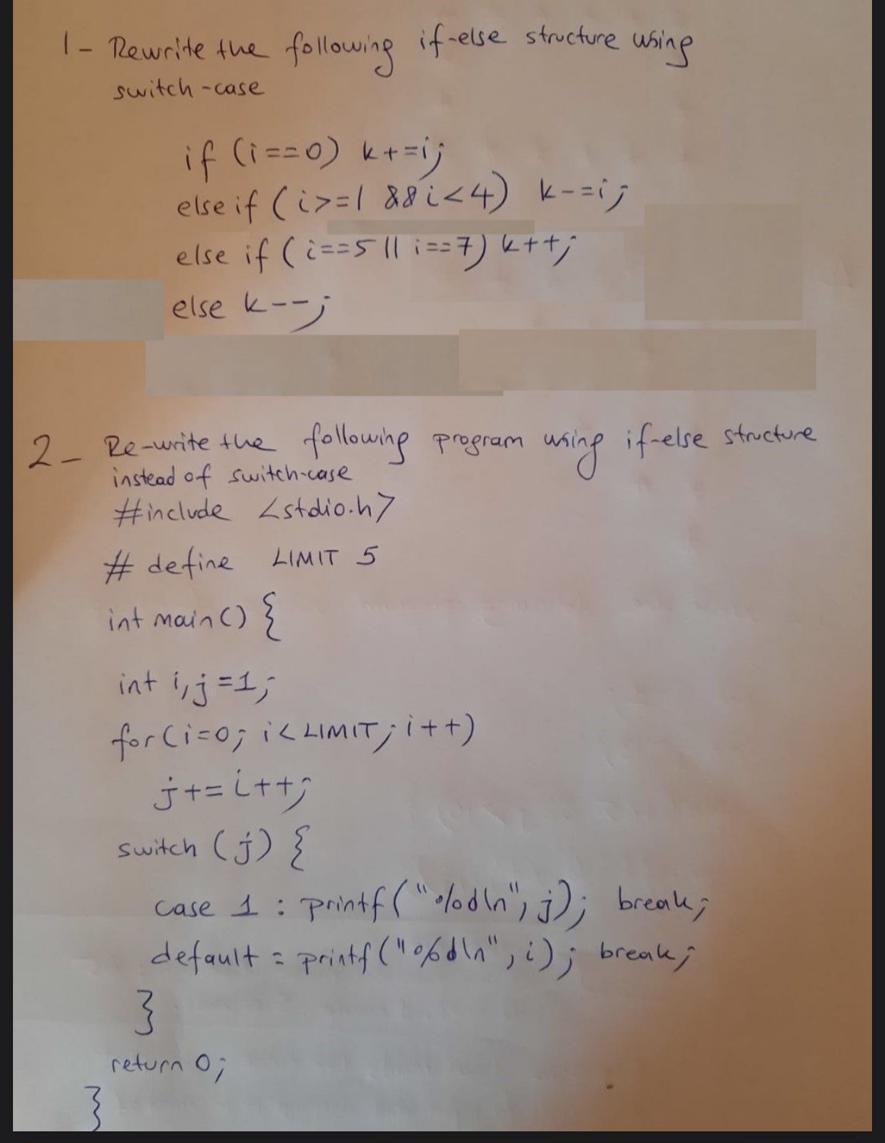 1- Rewrite the following if-else structure using
switch-case
if (i==0) k+=i;
else if (i>=1 && i<4) k-=i;
else if (i==5 || i==7) k++;
else k--;
2- Re-write the following program using if-else structure
instead of switch-case
#include <stdio.h>
# define LIMIT 5
int main() {
int i,j=1;
for(i=0; i<LIMIT; i++)
j+=i++;
switch (j) {
case 1 : printf("%d\n", j); break;
default = printf("%d\n", i); break;
}
return 0;
}